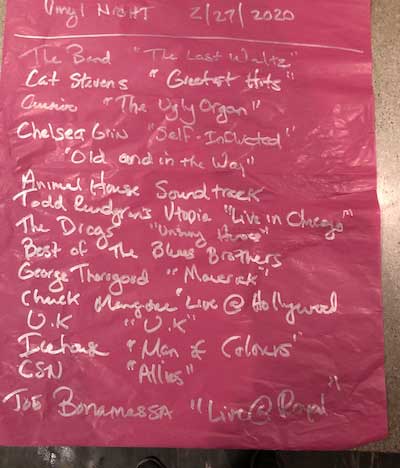 Vinyl Night 2/27/2020
The Band "The Last Waltz"
Cat Stevens "Greatest Hits"
Cursive "The Ugly Organ"
Chelsea Grin "Self-Inflicted"
"Old and in the Way"
Animal House Soundtrack
Todd Rundgren's Utopia "Live in Chicago"
The Dregs "Unsung Heroes"
Best of The Blues Brothers
George Thorogood "Maverick"
Chuck Mangione "Live @ Hollywood
U.K "U.K"
Icehouse "Man of Colours"
CSN "Allies"
Joe Bonamassa "Live @ Royal"